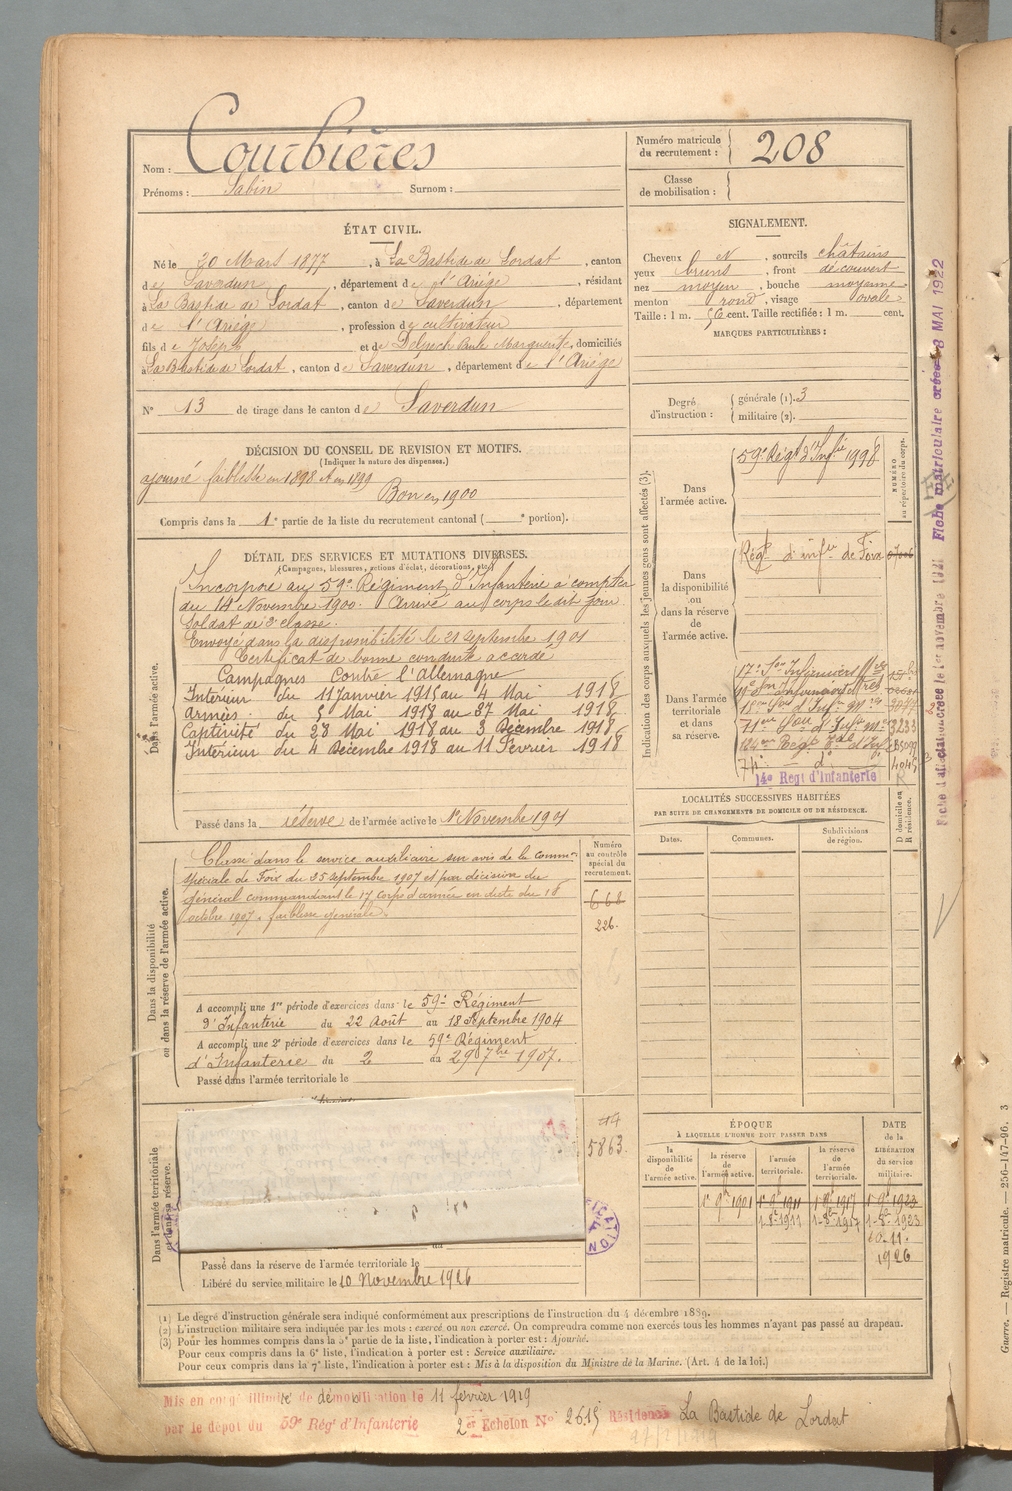 Nom : Courbières
Prénoms : Sabin Surnom :
Numéro matricule du recrutement : 208
Classe de mobilisation :
ÉTAT CIVIL.
Né le 30 Mars 1877, à La Bastide de Lordat, canton
de Saverdun, département de l'Ariége, résidant
à La Bastide de Lordat, canton de Saverdun, département
de l'Ariége, profession de cultivateur
fils de Joseph et de Delpech Paule Marguerite, domiciliés
à La Bastide de Lordat, canton de Saverdun, département de l'Ariége
N° 13 de tirage dans le canton de Saverdun
SIGNALEMENT.
Cheveux , sourcils châtains
yeux bruns, front découvert
nez moyen, bouche moyenne
menton rond, visage ovale
Taille : 1 m. 56 cent. Taille rectifiée : 1 m. cent.
MARQUES PARTICULIÈRES :
Degré d'instruction : générale (1). 3
militaire (2).
DÉCISION DU CONSEIL DE REVISION ET MOTIFS.
(Indiquer la nature des dispenses.)
ajourné faiblesse en 1898 et en 1899
Bon en 1900
Compris dans la 1e partie de la liste du recrutement cantonal ( e portion).
DÉTAIL DES SERVICES ET MUTATIONS DIVERSES.
(Campagnes, blessures, actions d'éclat, décorations, etc.)
Dans l'armée active.
Incorporé au 59e Régiment d'Infanterie à compter
du 14 Novembre 1900. Arrivé au corps le dit jour
Soldat de 2e classe.
Envoyé dans la disponibilité le 21 Septembre 1901
Certificat de bonne conduite accordé
Campagnes Contre l'Allemagne
Intérieur du 11 Janvier 1915 au 4 Mai 1918
Armées du 5 Mai 1918 au 27 Mai 1918
Captivité du 28 Mai 1918 au 3 Décembre 1918
Intérieur du 4 Décembre 1918 au 11 Février 1918
Passé dans la réserve de l'armée active le 1er Novembre 1901
Indication des corps auxquels les jeunes gens sont affectés (3).
NUMÉRO au répertoire du corps.
Dans l'armée active.
59e Régt d'Infie
Dans la disponibilité ou dans la réserve de l'armée active.
Régt d'infie de Foix
Dans l'armée territoriale et dans sa réserve.
14e Regt d'Infanterie
Fiche matriculaire créée 8 MAI 1922
LOCALITÉS SUCCESSIVES HABITÉES
PAR SUITE DE CHANGEMENTS DE DOMICILE OU DE RÉSIDENCE.
Dates. Communes. Subdivisions de région. D domicile ou R résidence.
Dans la disponibilité ou dans la réserve de l'armée active.
Numéro au contrôle spécial du recrutement.
668
226.
Classé dans le service auxiliaire sur avis de la comm.
spéciale de Foix du 25 septembre 1907 et par décision du
général commandant le 17 corps d'armée en date du 18
octobre 1907. faiblesse générale.
A accompli une 1re période d'exercices dans le 59e Régiment
d'Infanterie du 22 Août au 18 Septembre 1904
A accompli une 2e période d'exercices dans le 59e Régiment
d'Infanterie du 2 au 29 7bre 1907.
Passé dans l'armée territoriale le
Dans l'armée territoriale et dans sa réserve.
5863.
Passé dans la réserve de l'armée territoriale le
Libéré du service militaire le 10 Novembre 1926
ÉPOQUE
À LAQUELLE L'HOMME DOIT PASSER DANS
la disponibilité de l'armée active.
la réserve de l'armée active.
l'armée territoriale.
la réserve de l'armée territoriale.
DATE de la LIBÉRATION du service militaire.
1er 9bre 1901 1er 9bre 1911 1er 9bre 1917 1er 9bre 1923
10-11.
1926
(1) Le degré d'instruction générale sera indiqué conformément aux prescriptions de l'instruction du 4 décembre 1889.
(2) L'instruction militaire sera indiquée par les mots : exercé ou non exercé. On comprendra comme non exercés tous les hommes n'ayant pas passé au drapeau.
(3) Pour les hommes compris dans la 5e partie de la liste, l'indication à porter est : Ajourné.
Pour ceux compris dans la 6e liste, l'indication à porter est : Service auxiliaire.
Pour ceux compris dans la 7e liste, l'indication à porter est : Mis à la disposition du Ministre de la Marine. (Art. 4 de la loi.)
Mis en congé illimité de démobilisation le 11 février 1919
par le dépôt du 59e Rég' d'Infanterie 2er Echelon N° 2615 Résidence La Bastide de Lordat
Guerre. — Registre matricule. — 256-147-96. 3